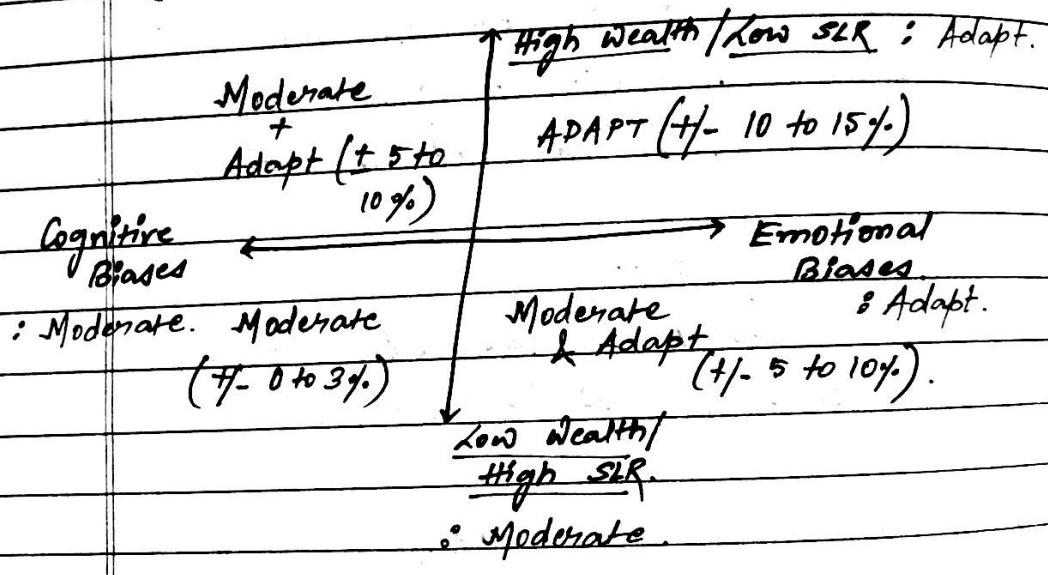 High Wealth / Low SLR : Adapt.
Moderate
+
Adapt (± 5 to
10%)
ADAPT (+/- 10 to 15%)
Cognitive
Biases
: Moderate.
Emotional
Biases.
: Adapt.
Moderate
(+/- 0 to 3%)
Moderate
& Adapt
(+/- 5 to 10%).
Low Wealth/
High SLR.
: Moderate.